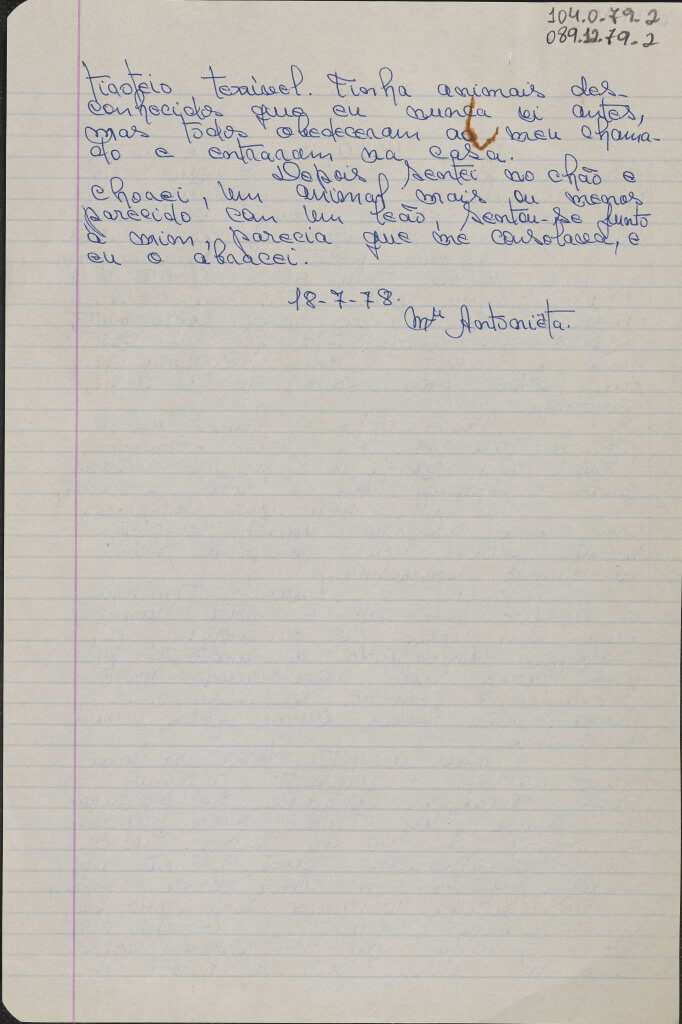 104.0.79.2
089.12.79-2
tiroteio terrível. Tinha animais des-
conhecidos que eu nunca vi antes,
mas todos obedeceram ao meu chama-
do e entraram na casa.
Depois sentei no chão e
chorei, um animal mais ou menos
parecido com um leão, sentou-se junto
à mim, parecia que me consolava, e
eu o abracei.
18-7-78.
Mª Antonieta.